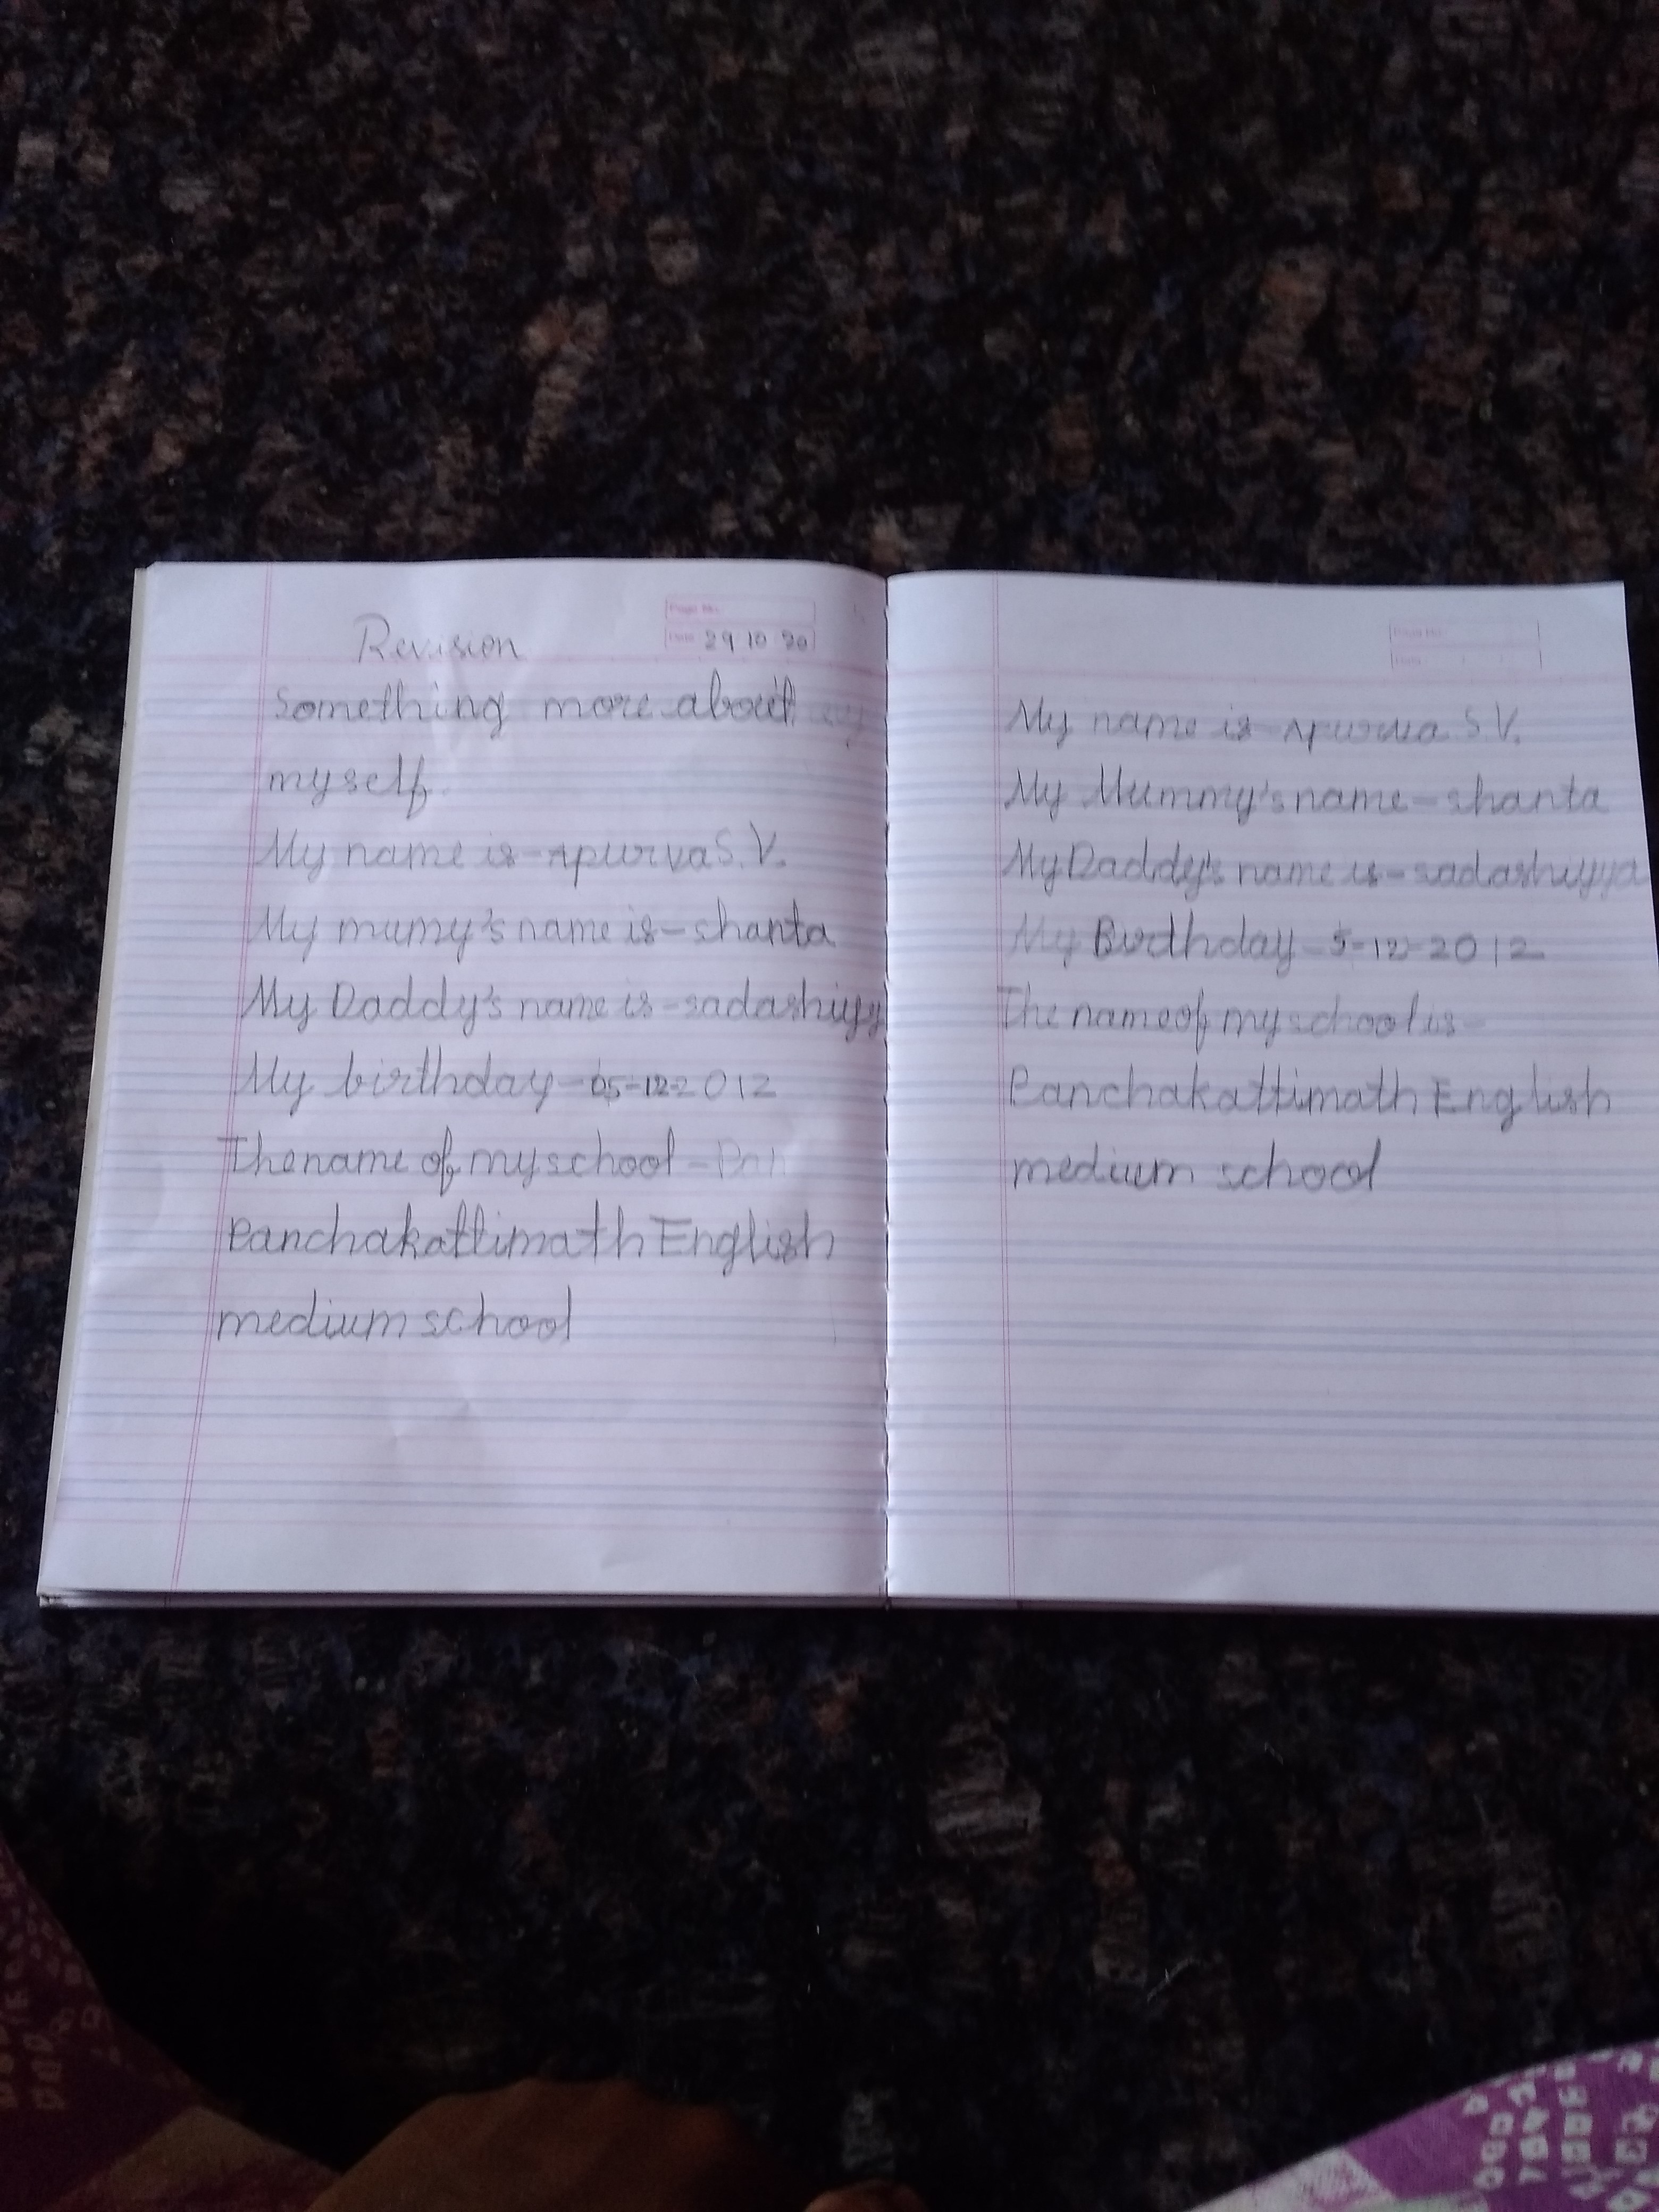 Revision
Page No.
Date 29 10 20
Something more about
myself.
My name is - Apurva S.V.
My mumy's name is - shanta
My Daddy's name is - sadashiyy
My birthday - 05-12-2012
The name of my school - Pan
Panchakattimath English
medium school
Page No.
Date
My name is - Apurva S.V.
My Mummy's name - shanta
My Daddy's name is - sadashiyya
My Birthday - 5-12-2012
The name of my school is -
Panchakattimath English
medium school